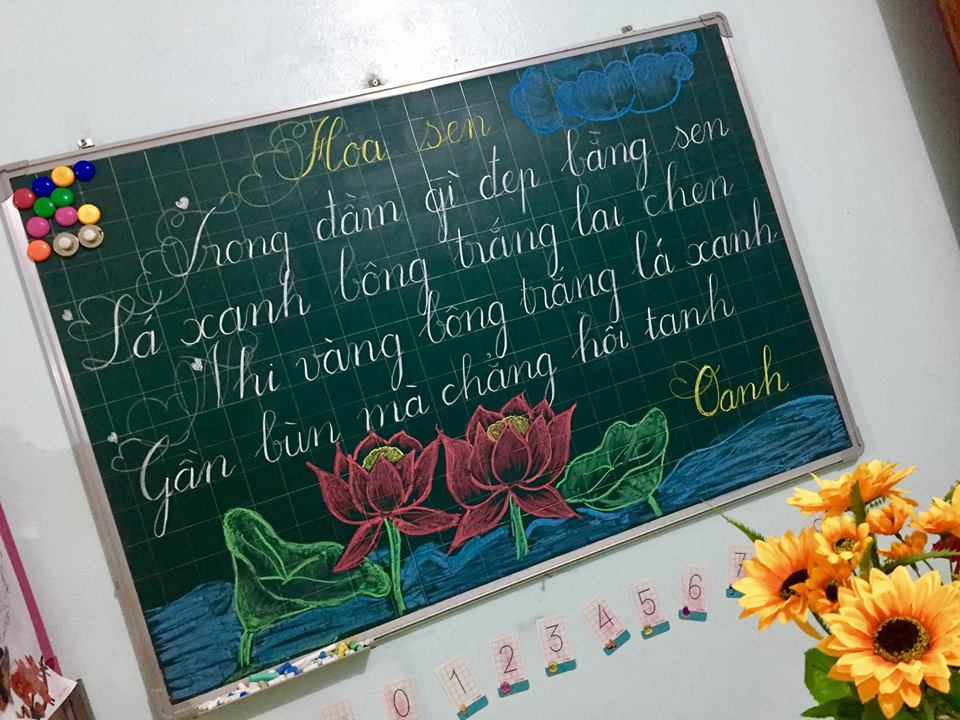 Hoa sen
Trong đầm gì đẹp bằng sen
Lá xanh bông trắng lại chen
Nhi vàng bông trắng lá xanh
Gần bùn mà chẳng hôi tanh
Oanh
0 1 2 3 4 5 6 7